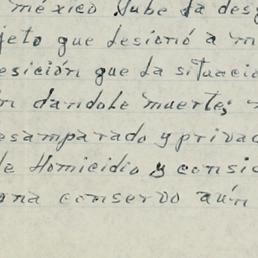 méxico Tube la des
jeto que lesionó a m
esición que la situacio
n dandole muerte;
esamparado y privad
de Homicidio y consid
ona conservo aún